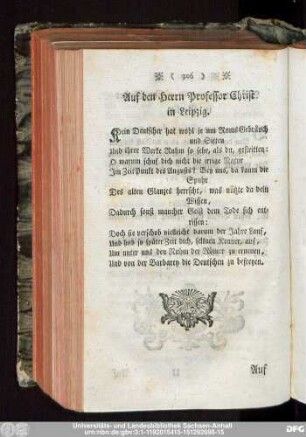 ※ ( 306 ) ※
Auf den Herrn Professor Christ
in Leipzig.
Kein Deutscher hat wohl je um Roms Gebräuch
und Sitten
Und ihrer Werke Ruhm so sehr, als du, gestritten:
O warum schuf dich nicht die Natur
Im ZeitPunkt des Augusts? Bey uns, da kaum die
Spuhr
Des alten Glanzes herrscht, was nützte da dein
Wißen,
Dadurch sonst mancher Geist dem Tode sich ent-
rissen:
Doch sie verschob vielleicht darum der Jahre Lauf,
Und hob so später Zeit dich, seltnen Kenner, auf,
Um unter uns den Ruhm der Römer zu erneuen,
Und von der Barbarey die Deutschen zu befreyen.
Auf
Universitäts- und Landesbibliothek Sachsen-Anhalt
DFG